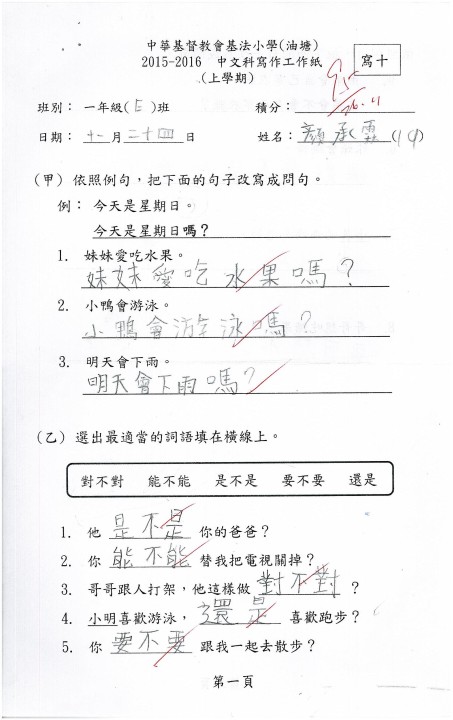 中華基督教會基法小學(油塘)
2015-2016 中文科寫作工作紙
寫十
(上學期)
班別： 一年級(E)班 積分：
26.11
日期： 十一月二十四日 姓名： 顏承霖(19)
(甲) 依照例句，把下面的句子改寫成問句。
例： 今天是星期日。
今天是星期日嗎？
1. 妹妹愛吃水果。
妹妹愛吃水果嗎？
2. 小鴨會游泳。
小鴨會游泳嗎？
3. 明天會下雨。
明天會下雨嗎？
(乙) 選出最適當的詞語填在橫線上。
對不對 能不能 是不是 要不要 還是
1. 他 是不是 你的爸爸？
2. 你 能不能 替我把電視關掉？
3. 哥哥跟人打架，他這樣做 對不對 ？
4. 小明喜歡游泳， 還是 喜歡跑步？
5. 你 要不要 跟我一起去散步？
第一頁